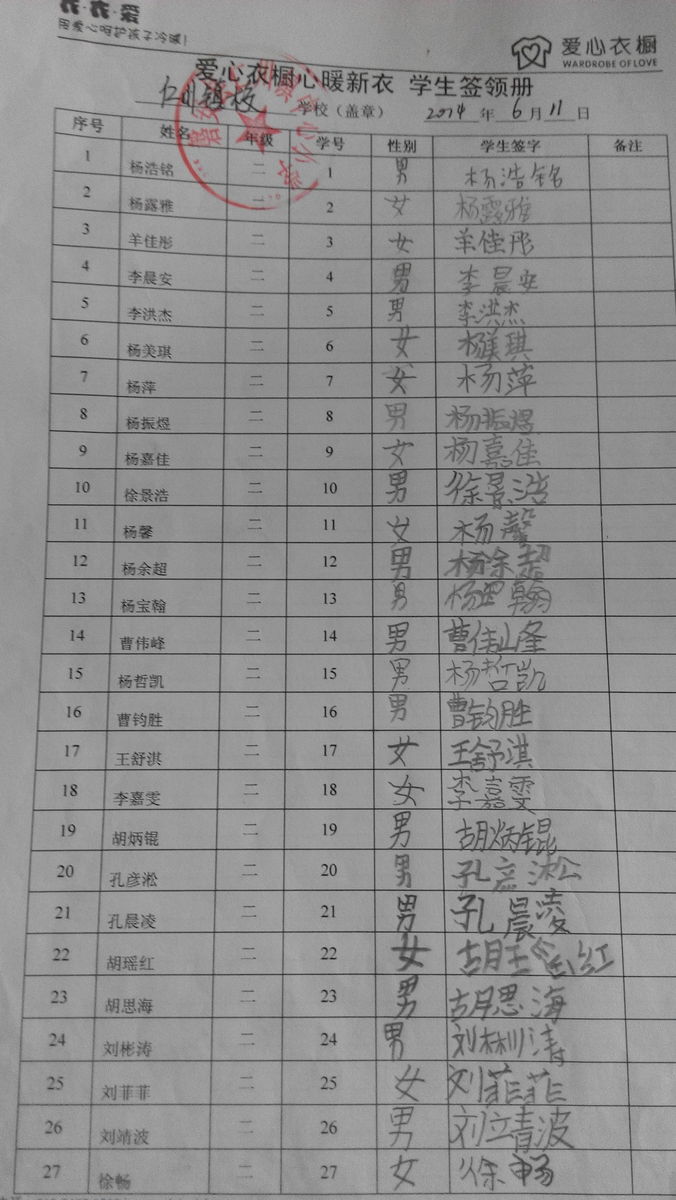 衣·衣·爱
用爱心呵护孩子冷暖!
爱心衣橱
WARDROBE OF LOVE
爱心衣橱心暖新衣 学生签领册
仁川镇校 学校（盖章） 2014 年 6 月 11 日
序号 姓名 年级 学号 性别 学生签字 备注
1 杨浩铭 二 1 男 杨浩铭
2 杨露雅 二 2 女 杨露雅
3 羊佳彤 二 3 女 羊佳彤
4 李晨安 二 4 男 李晨安
5 李洪杰 二 5 男 李洪杰
6 杨美琪 二 6 女 杨美琪
7 杨萍 二 7 女 杨萍
8 杨振煜 二 8 男 杨振煜
9 杨嘉佳 二 9 女 杨嘉佳
10 徐景浩 二 10 男 徐景浩
11 杨馨 二 11 女 杨馨
12 杨余超 二 12 男 杨余超
13 杨宝瀚 二 13 男 杨宝瀚
14 曹伟峰 二 14 男 曹伟峰
15 杨哲凯 二 15 男 杨哲凯
16 曹钧胜 二 16 男 曹钧胜
17 王舒淇 二 17 女 王舒淇
18 李嘉雯 二 18 女 李嘉雯
19 胡炳锟 二 19 男 胡炳锟
20 孔彦淞 二 20 男 孔彦淞
21 孔晨凌 二 21 男 孔晨凌
22 胡瑶红 二 22 女 胡瑶红
23 胡思海 二 23 男 胡思海
24 刘彬涛 二 24 男 刘彬涛
25 刘菲菲 二 25 女 刘菲菲
26 刘靖波 二 26 男 刘靖波
27 徐畅 二 27 女 徐畅